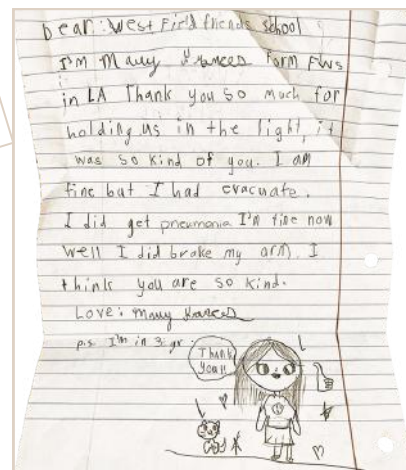 Dear: West Field friends school
I'm Mary Frances form FWS
in LA Thank you so much for
holding us in the light, it
was so kind of you. I am
fine but I had evacuate.
I did get pneumonia I'm fine now
well I did brake my arm. I
think you are so kind.
Love: Mary Frances
p.s I'm in 3 gr.
Thank